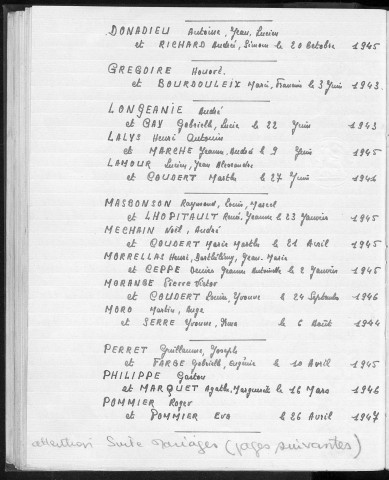 DONADIEU Antoine, Jean, Lucien
et RICHARD André, Simone le 20 Octobre 1945
GREGOIRE Honoré
et BOURDOULEIX Marie, Francine le 3 Juin 1943
LONGEANIE André
et GAY Gabrielle, Lucie le 22 Juin 1943
LALYS Henri Antonin
et MARCHE Jeanne, Andrée le 9 Juin 1945
LAMOUR Lucien, Jean Alexandre
et COUDERT Marthe le 27 Juin 1946
MASBONSON Raymond, Louis, Marcel
et LHOPITAULT René, Jeanne le 23 Janvier 1945
MECHAIN Noël, André
et COUDERT Marie Marthe le 21 Avril 1945
MORRELLAS Henri, Barthélémy, Jean, Marie
et CEPPE Denise Jeanne Antoinette le 2 Janvier 1945
MORANGE Pierre Victor
et COUDERT Lucie, Yvonne le 24 Septembre 1946
MORO Martin, Ange
et SERRE Yvonne, le 6 Août 1944
PERRET Guillaume, Joseph
et FARGE Gabrielle, Eugénie le 10 Avril 1945
PHILIPPE Gaston
et MARQUET Agathe, Marguerite le 16 Mars 1946
POMMIER Roger
et POMMIER Eva le 26 Avril 1947
attention Suite mariages (pages suivantes)